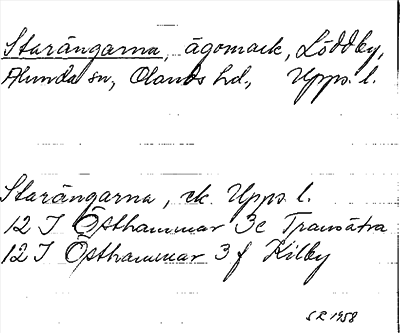 Starängarna, ägomark, Löddby,
Alunda sn, Olands hd, Upps. l.
Starängarna, ek. Upps. l.
12 I Östhammar 3e Transätra
12 I Östhammar 3f Kilby
SR 1958